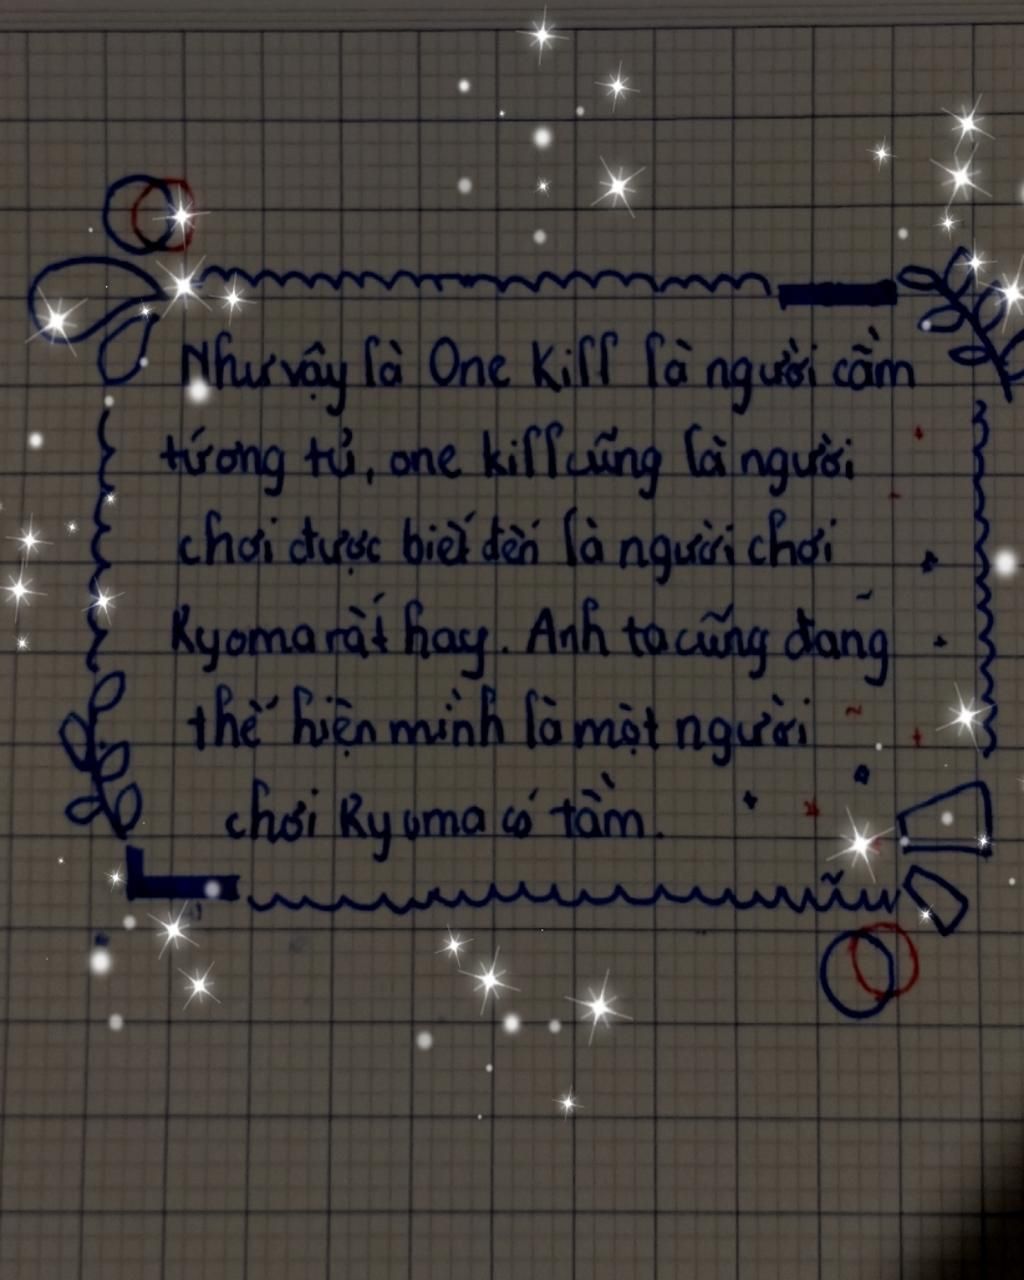 Như vậy là One Kill là người cầm
tướng tủ, one kill cũng là người
chơi được biết đến là người chơi
Kyoma rất hay. Anh ta cũng đang
thể hiện mình là một người
chơi Kyoma có tầm.